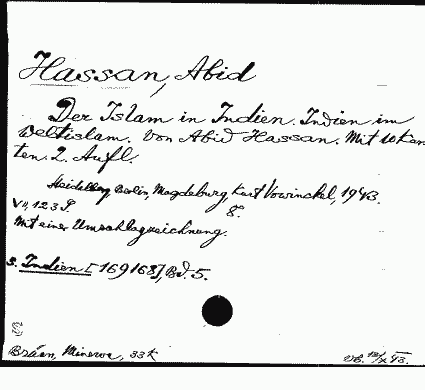 Hassan, Abid
Der Islam in Indien. Indien im
Weltislam. Von Abid Hassan. Mit 10 Kar
ten. 2. Aufl.
Heidelberg, Berlin, Magdeburg, Kurt Vowinckel, 1943.
8°.
VII, 123 S.
Mit einer Umschlagzeichnung.
s. Indien [169168], Bd. 5.
Minerva, 33 K
VB. X 43.